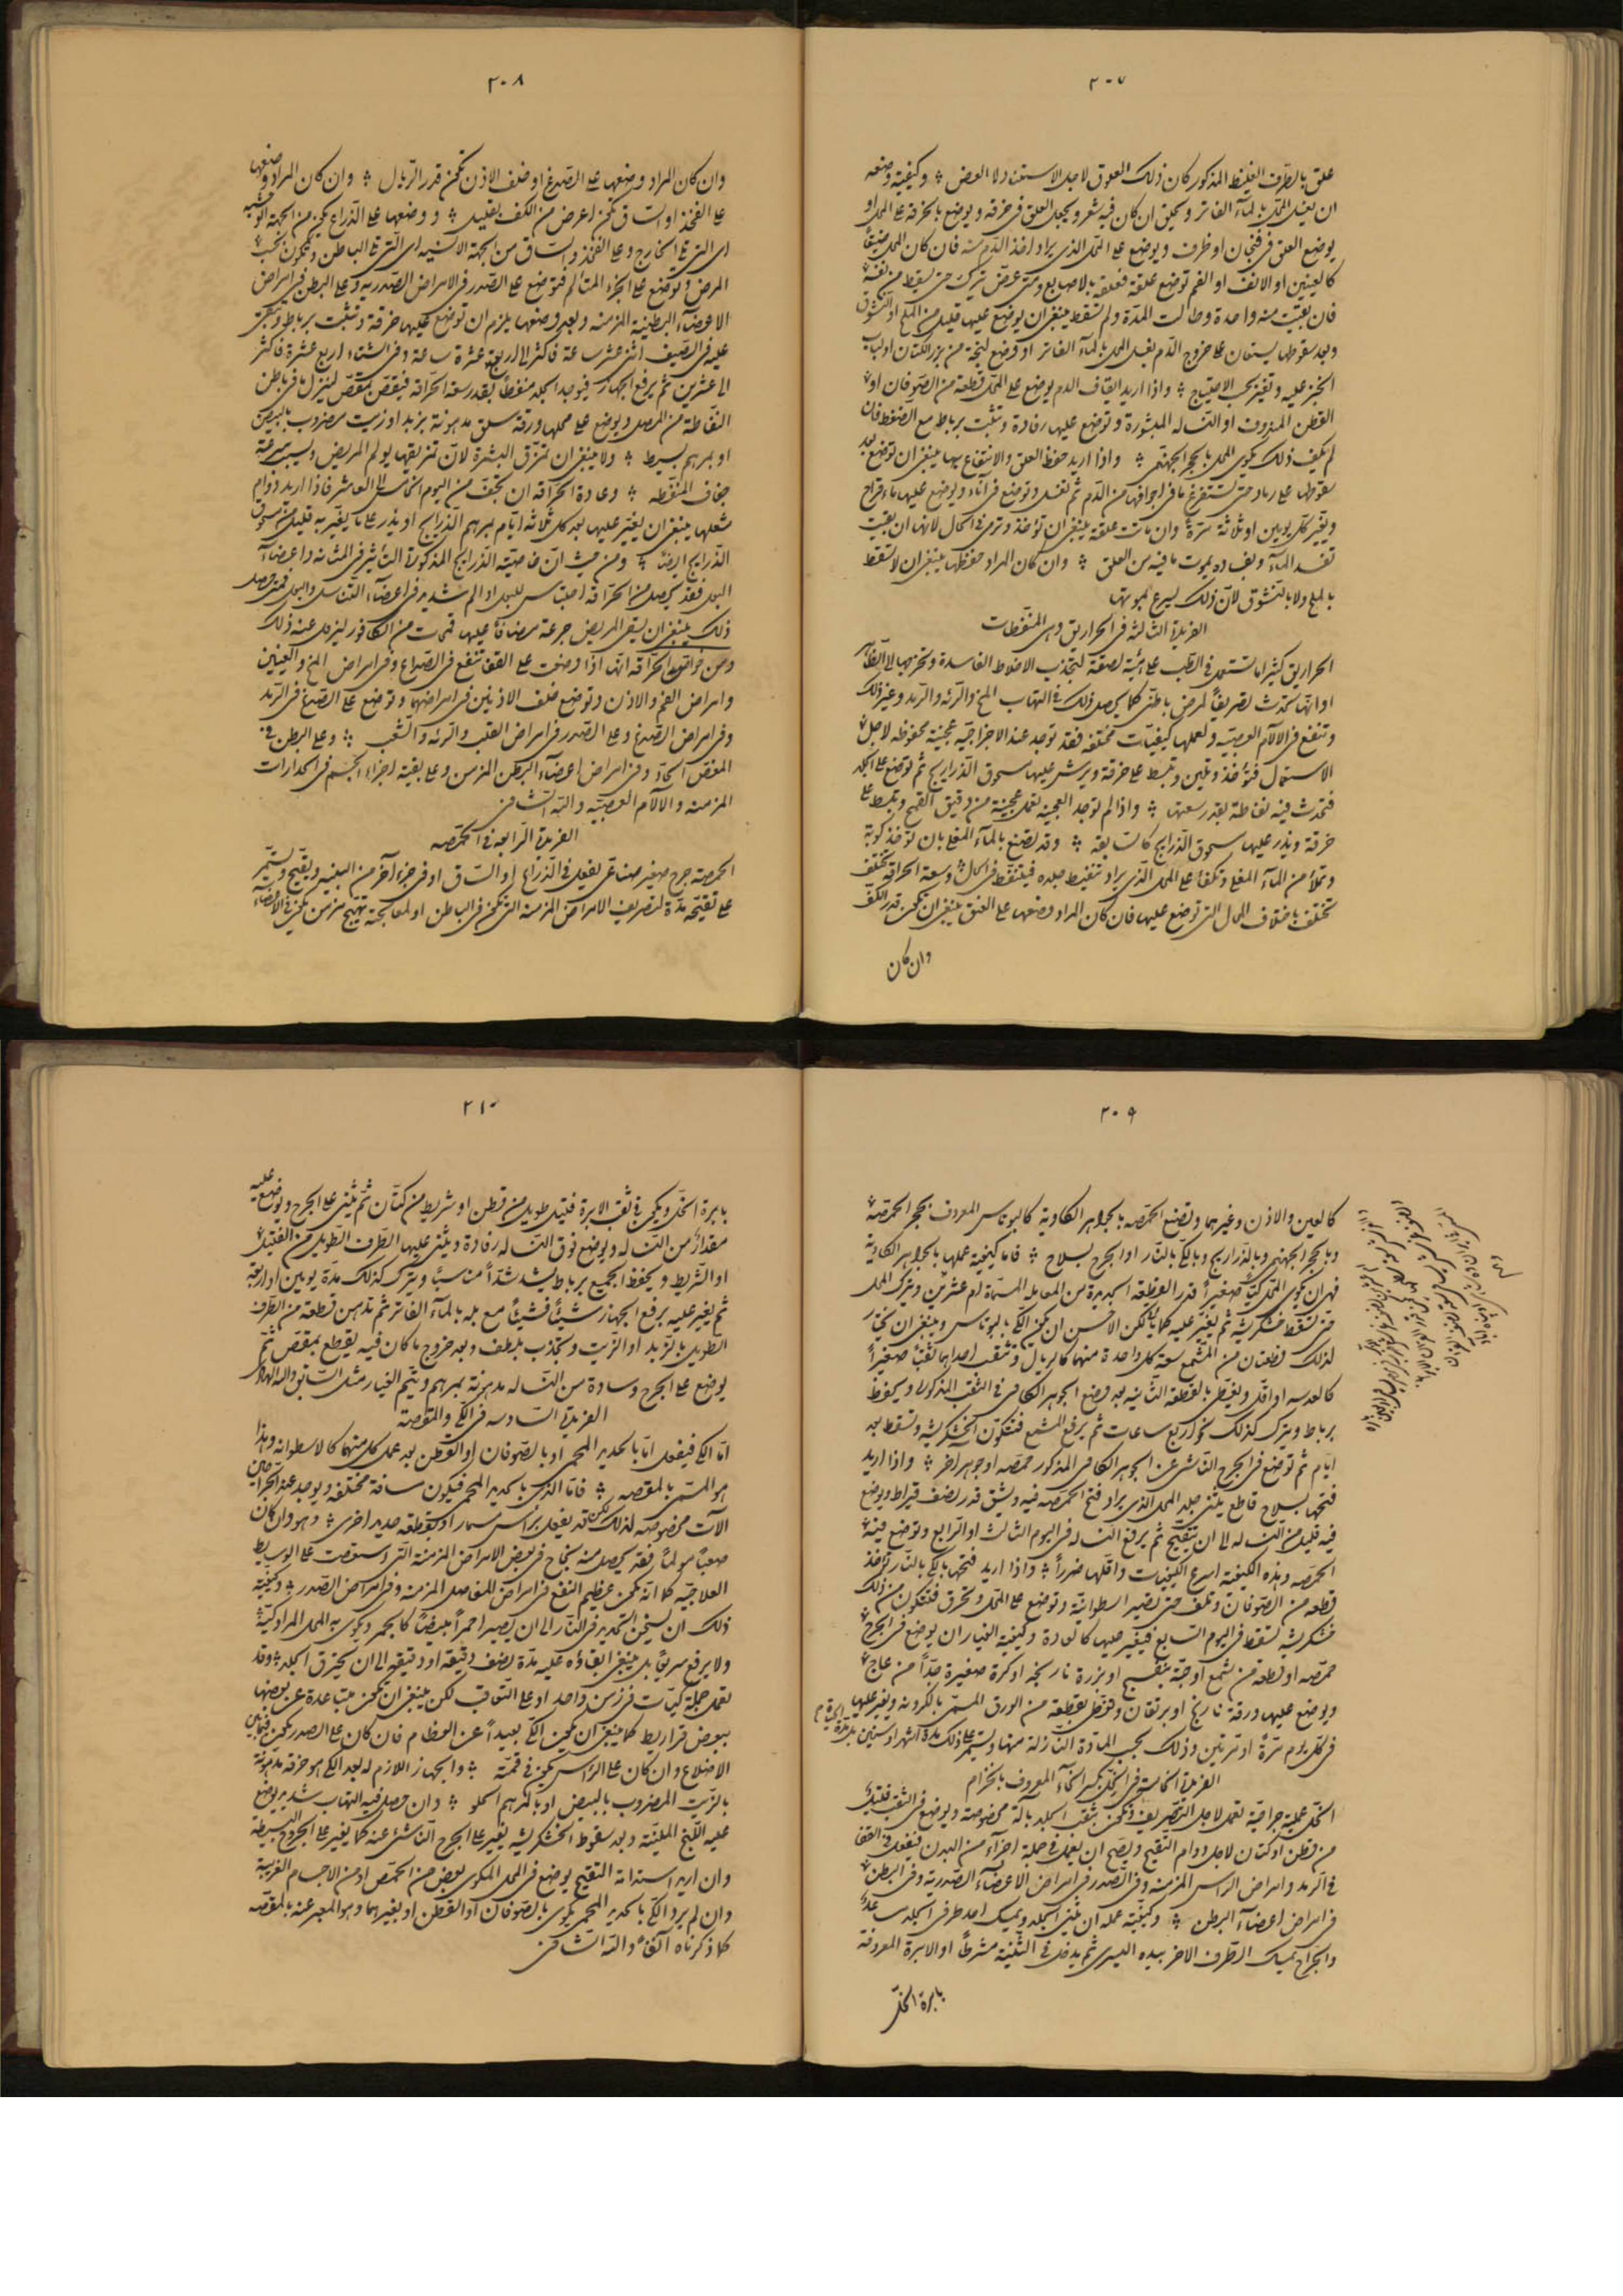 ٢٠٧
علق بالطرف الغليظ المذكور كان ذلك العلوق لاجل الاستناد لا العض ؞ وكيفية وضعه
ان يغسل المحل بالماء الفاتر ويحلق ان كان فيه شعر ويجعل العلق فى خرقة ويوضع بالخرقة على المحل او
يوضع العلق فى فنجان او ظرف ويوضع على المحل الذى يراد اخذ الدم منه فان كان المحل ضيقاً
كالعينين او الانف او الفم توضع علقة فعلقة بالاصابع ومتى عض تترك حتى تسقط من نفسه
فان بقيت منه واحدة وطالت المدة ولم تسقط ينبغى ان يوضع عليها قليل من الملح او النشوق
وبعد سقوطها يستعان على خروج الدم بغسل المحل بالماء الفاتر او وضع لبخة من بزر الكتان او لباب
الخبز عليه وتغير بحسب الاحتياج ؞ واذا اريد ايقاف الدم يوضع على المحل قطعة من الصوفان او
القطن المندوف او النسالة المبشورة وتوضع عليها رفادة وتثبت برباط مع الضغط فان
لم يكف ذلك يكوى المحل بالحجر الجهنمى ؞ واذا اريد حفظ العلق والانتفاع بها ينبغى ان توضع بعد
سقوطها على رماد حتى تستفرغ ما فى اجوافها من الدم ثم تغسل وتوضع فى اناء ويوضع عليها ماء قراح
ويغير كل يومين او ثلاثة مرة وان ماتت علقة ينبغى ان تؤخذ وترمى فى الحال لانها ان بقيت
تفسد الماء وبفساده يموت ما فيه من العلق ؞ وان كان المراد حفظها ينبغى ان لا تسقط
بالملح ولا بالنشوق لان ذلك يسرع لموتها
الفريدة الثالثة فى الحراريق وهى المنفطات
الحراريق كثيرا ما تستعمل فى الطب على هيئة لصقة لتجذب الاخلاط الفاسدة وتخرجها الى الظاهر
او انها تحدث تصريفاً لمرض باطنى كما يحصل ذلك فى التهاب المخ والرئة والرمد وغير ذلك
وتنفع فى الآلام العصبية ولعملها كيفيات مختلفه فقد توجد عند الاجزاجية عجينة محفوظه لاجل
الاستعمال فتؤخذ وتلين وتبسط على خرقة ويرش عليها مسحوق الذراريح ثم توضع على الجلد
فتحدث فيه نفاطة بقدر سعتها ؞ واذا لم توجد العجينة تعمل عجينة من دقيق القمح وتبسط على
خرقة ويذر عليها مسحوق الذراريح كالسابقه ؞ وقد تصنع بالماء المغلى بان تؤخذ كوبة
وتملأ من الماء المغلى وتكفأ على المحل الذى يراد تنفيط جلده فيتنفط فى الحال ؞ وسعة الحراقة تختلف
تختلف باختلاف المحال التى توضع عليها فان كان المراد وضعها على العنق ينبغى ان تكون قدر الكف
وان كان
٢٠٨
وان كان المراد وضعها على الصدغ او خلف الاذن تكون قدر الريال ؞ وان كان المراد وضعها
على الفخذ او الساق تكون اعرض من الكف بقليل ؞ ووضعها على الذراع يكون من الجهة الوحشية
اى التى فى الخارج وعلى الفخذ والساق من الجهة الانسيه اى التى فى الباطن وتكون بحسب
المرض وتوضع على الجزء المتالم فتوضع على الصدر فى الامراض الصدريه وعلى البطن فى امراض
الاعضاء البطنية المزمنه وبعد وضعها يلزم ان توضع عليها خرقة وتثبت برباط وتبقى
عليه فى الصيف اثنى عشر ساعة فاكثر الى اربعة عشرة ساعة وفى الشتاء اربع عشرة فاكثر
الى عشرين ثم يرفع الجهاز فيوجد الجلد منفطاً بقدر سعة الحراقة فيقص بمقص لينزل ما فى باطن
النفاطة من المصل ويوضع على محلها ورقة سلق مدهونة بزبد او زيت مضروب بالبيض
او بمرهم بسيط ؞ ولا ينبغى ان تمزق البشرة لان تمزيقها يولم المريض ويسبب سرعة
جفاف المنفطه ؞ وعادة الحراقه ان تجف من اليوم الخامس الى العاشر فاذا اريد دوام
شغلها ينبغى ان يغير عليها بعد كل ثلاثة ايام بمرهم الذراريح او يذر على ما يغير به قليل من مسحوق
الذراريح ايضاً ؞ ومن حيث ان خاصية الذراريح المذكورة التأثير فى المثانة واعضاء
البول فقد يحصل من الحراقه احتباس للبول او الم شديد فى اعضاء التناسل والبول فمتى حصل
ذلك ينبغى ان يسقى المريض جرعة مضافاً عليها قمحات من الكافور ليزول عنه ذلك
ومن خواص الحراقه انها اذا وضعت على القفا تنفع فى الصداع وفى امراض المخ والعينين
وامراض الفم والاذن وتوضع خلف الاذنين فى امراضهما وتوضع على الصدغ فى الرمد
وفى امراض الصدغ وعلى الصدر فى امراض القلب والرئه والشعب ؞ وعلى البطن فى
المغص الحاد وفى امراض اعضاء البطن المزمن وعلى بقية اجزاء الجسم فى الحدارات
المزمنه والآلام العصبيه والله الشافى
الفريدة الرابعه فى الحمصه
الحمصة جرح صغير صناعى يفعل فى الذراع او الساق او فى جزء آخر من البنيه ويقيح ويستمر
على تقيحه مدة لتصريف الامراض المزمنة التى تكون فى الباطن او لمعالجة تهيج مزمن يكون فى الاعضاء
٢٠٩
كالعين والاذن وغيرهما وتصنع الحمصه بالجواهر الكاوية كالبوتاس المعروف بحجر الحمصة
وبالحجر الجهنمى وبالذراريح وبالكى بالنار او الجرح بسلاح ؞ فاما كيفية عملها بالجواهر الكاوية
فهى ان يكوى المحل كياً صغيراً قدر القطعه الجديدة من المعامله المسماة ام عشرين ويترك المحل
حتى تسقط خشكريشته ثم يغير عليه كما ياتى لكن الاحسن ان يكون الكى بالبوتاس وينبغى ان تحضر
لذلك قطعتان من المشمع سعة كل واحدة منهما كالريال وتثقب احداهما ثقباً صغيراً
كالعدسه او اقل ويغطى بالقطعة الثانيه بعد وضع الجوهر الكاوى فى الثقب المذكور ويحفظ
برباط ويترك كذلك نحو اربع ساعات ثم يرفع المشمع فتتكون الخشكريشة وتسقط بعد
ايام ثم توضع فى الجرح الناشى عن الجوهر الكاوى المذكور حمصه او جوهر اخر ؞ واذا اريد
فتحها بسلاح قاطع يثنى جلد المحل الذى يراد فتح الحمصه فيه ويشق قدر نصف قيراط ويوضع
فيه قليل من النسالة الى ان يتقيح ثم يرفع النسالة فى اليوم الثالث او الرابع وتوضع فيه
الحمصه وهذه الكيفية اسرع الكيفيات واقلها ضرراً ؞ واذا اريد فتحها بالكى بالنار تؤخذ
قطعه من الصوفان وتلف حتى تصير اسطوانية وتوضع على المحل وتحرق فتتكون من ذلك
خشكريشة تسقط فى اليوم السابع فيغير عليها كالعادة وكيفية الغيار ان يوضع فى الجرح
حمصه او قطعة من شمع او حبة بنفسج او بزرة نارنجه او كرة صغيرة جداً من عاج
ويوضع عليها ورقة نارنج او برتقان وتغطى بقطعة من الورق المسمى بالكرونه ويغير عليها
فى كل يوم مرة او مرتين وذلك بحسب المادة النازلة منها ويستمر على ذلك مدة اشهر او سنين بل مدة الحيوة
الفريدة الخامسة فى الخل بكسر الخاء المعروف بالخزام
الخل عملية جراحية تعمل لاجل التصريف وتكون بثقب الجلد بآلة مخصوصة ويوضع فى الثقب فتيل
من قطن او كتان لاجل دوام التقيح ويصح ان يعمل فى جملة اجزاء من البدن فيفعل فى القفا
فى الرمد وامراض الراس المزمنه وفى الصدر فى امراض الاعضاء الصدرية وفى البطن
فى امراض اعضاء البطن ؞ وكيفية عمله ان يثنى الجلد ويمسك احد طرفى الجلد مساعد
والجراح يمسك الطرف الاخر بيده اليسرى ثم يدخل فى الثنية مشرطاً او الابرة المعروفة
بابرة الخل
٢١٠
بابرة الخل ويكون فى ثقب الابرة فتيل طويل من قطن او شريط من كتان ثم يثنى على الجرح ويوضع عليه
مقدار من النسالة ويوضع فوق النسالة رفادة ويثنى عليها الطرف الطويل من الفتيل
او الشريط ويحفظ الجميع برباط يشد شداً مناسباً ويترك كذلك مدة يومين او اربعة
ثم يغير عليه برفع الجهاز شيئاً فشيئاً مع بله بالماء الفاتر ثم تدهن قطعة من الطرف
الطويل بالزبد او الزيت وتجذب بلطف وبعد خروج ما كان فيه يقطع بمقص ثم
يوضع على الجرح وسادة من النسالة مدهونة بمرهم ويتمم الغيار مثل السابق والله الهادى
الفريدة السادسه فى الكى والمقصة
اما الكى فيفعل اما بالحديد المحمى او بالصوفان او القطن بعد عمل كل منهما كالاسطوانه وهذا
هو المسمى بالمقصه ؞ فاما الذى بالحديد المحمى فيكون مسافة مختلفه ويوجد عند الجراحين
الآت مخصوصه لذلك لكن قد يفعل براس مسمار او بقطعه حديد اخرى ؞ وهو وان كان
صعباً مولماً فقد يحصل منه نجاح فى بعض الامراض المزمنة التى استعصت على الوسايط
العلاجيه كما انه يكون عظيم النفع فى امراض المفاصل المزمنة وفى امراض الصدر ؞ وكيفية
ذلك ان يسخن الحديد فى النار الى ان يصير احمراً مبيضاً كالجمر ويكوى به المحل المراد كيه
ولا يرفع سريعاً بل ينبغى ابقاؤه عليه مدة نصف دقيقة او دقيقه الى ان يحترق الجلد ؞ وقد
تعمل جملة كيات فى زمن واحد او على التعاقب لكن ينبغى ان تكون متباعدة عن بعضها
ببعض قراريط كما ينبغى ان يكون الكى بعيداً عن العظام فان كان على الصدر يكون فيما بين
الاضلاع وان كان على الراس يكون فى قمته ؞ والجهاز اللازم له بعد الكى هو خرقة مدهونة
بالزيت المضروب بالبيض او بالمرهم الحلو ؞ وان حصل فيه التهاب شديد يوضع
عليه اللبخ الملينة وبعد سقوط الخشكريشة يغير على الجرح الناشئ عنه كما يغير على الجروح البسيطة
وان اريد استدامة التقيح يوضع فى المحل المكوى بعض من الحمص او من الاجسام الغريبة
وان لم يرد الكى بالحديد المحمى يكوى بالصوفان او القطن او بغيرهما وهو المعبر عنه بالمقصه
كما ذكرناه آنفاً والله الشافى